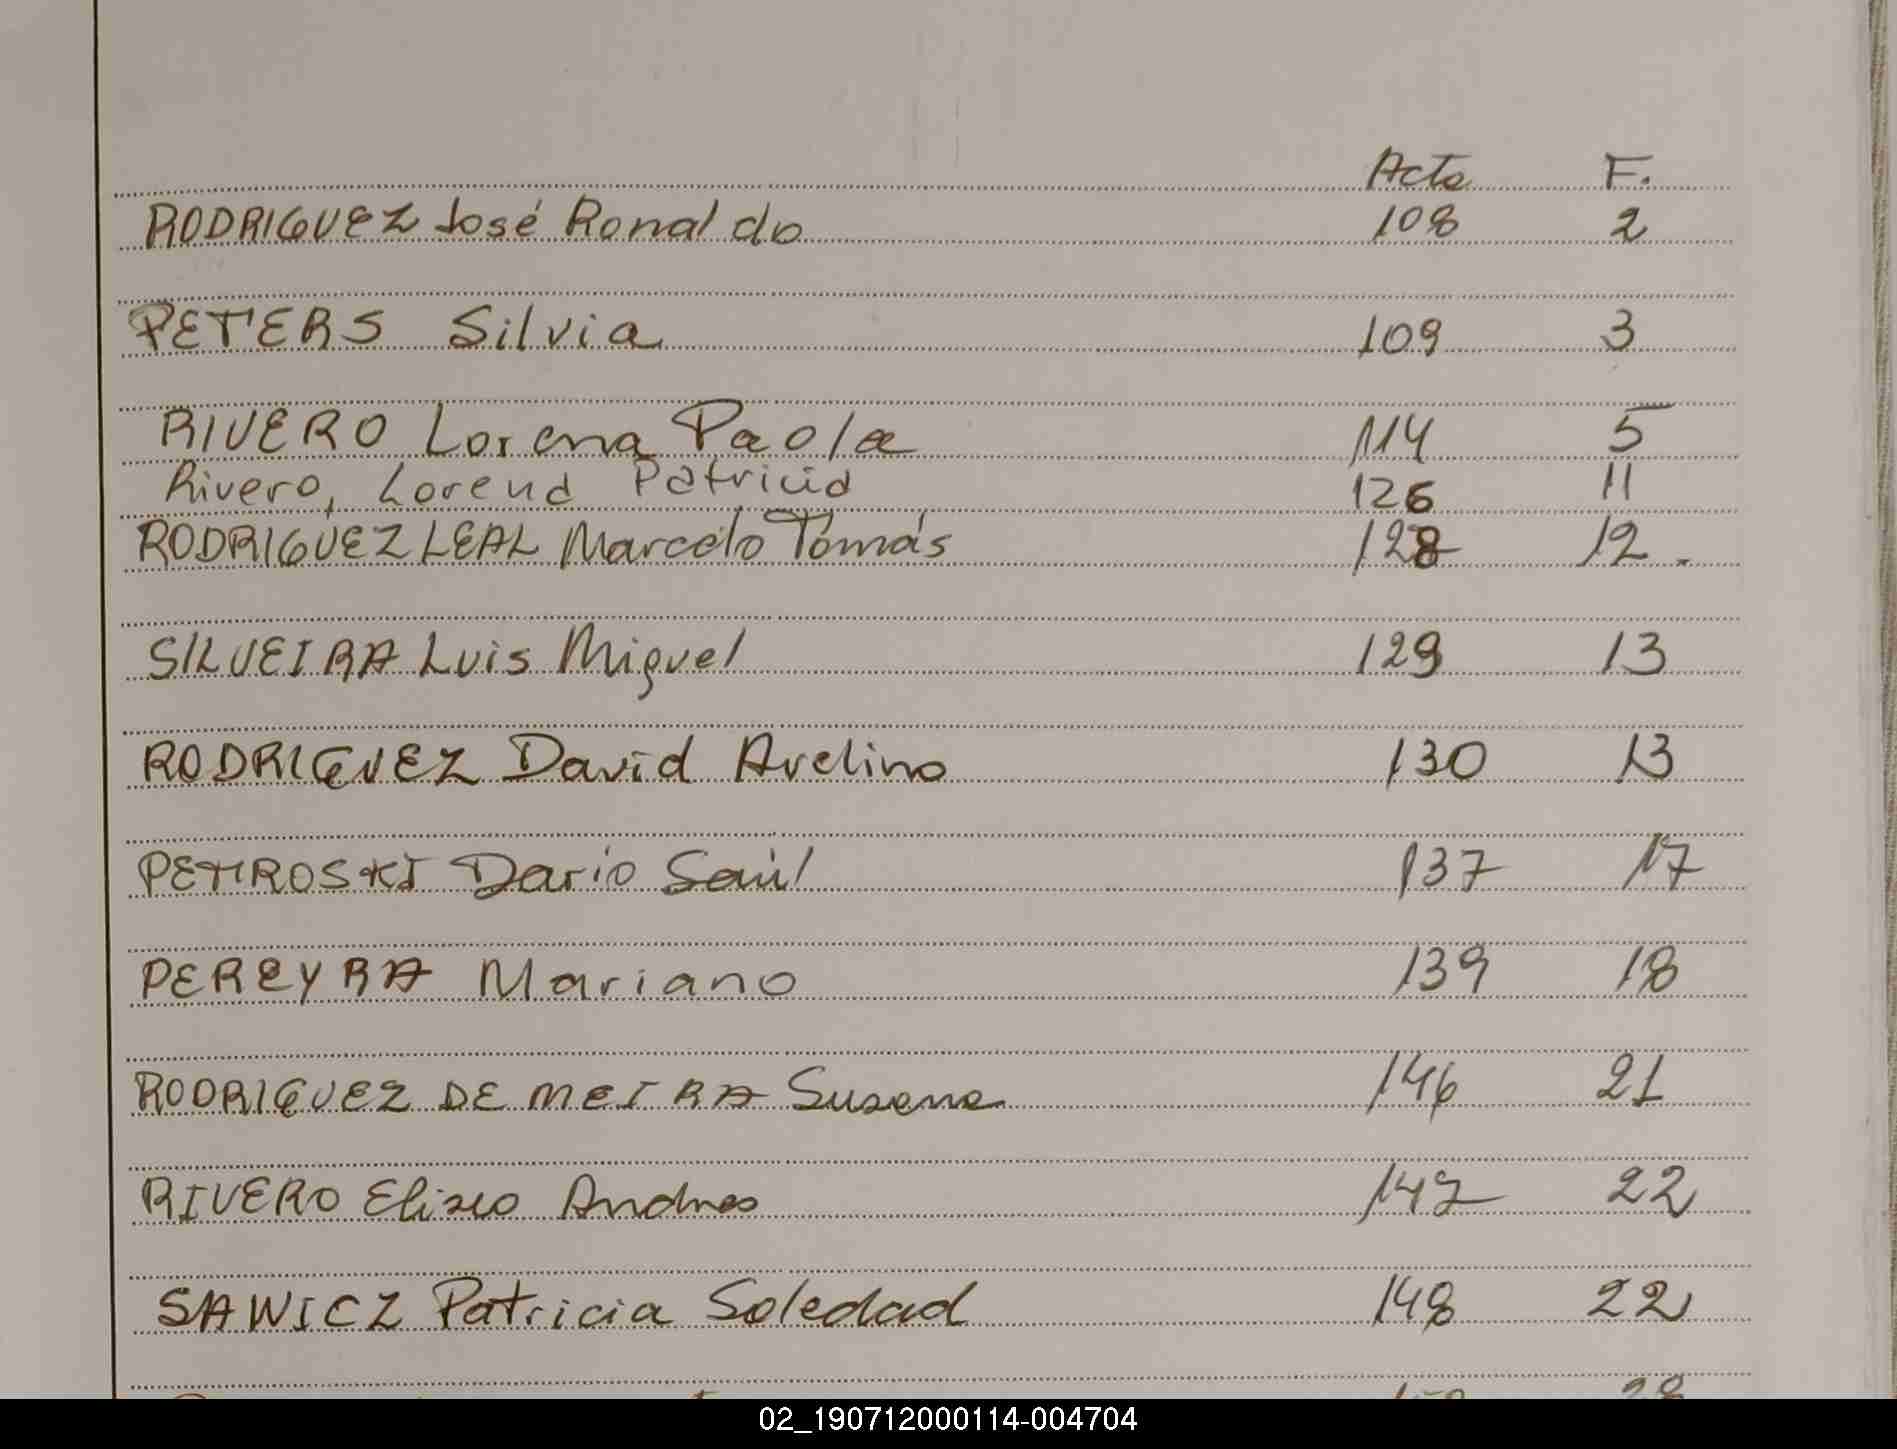 Acta F.
RODRIGUEZ José Ronaldo 108 2
PETERS Silvia 109 3
RIVERO Lorena Paola 114 5
Rivero, Lorena Patricia 126 11
RODRIGUEZ LEAL Marcelo Tomás 128 12.
SILVEIRA Luis Miguel 129 13
RODRIGUEZ David Avelino 130 13
PETTROSKI Dario Saúl 137 17
PEREYRA Mariano 139 18
RODRIGUEZ DE MEIRA Susana 146 21
RIVERO Eliseo Andres 147 22
SAWICZ Patricia Soledad 148 22
02_190712000114-004704